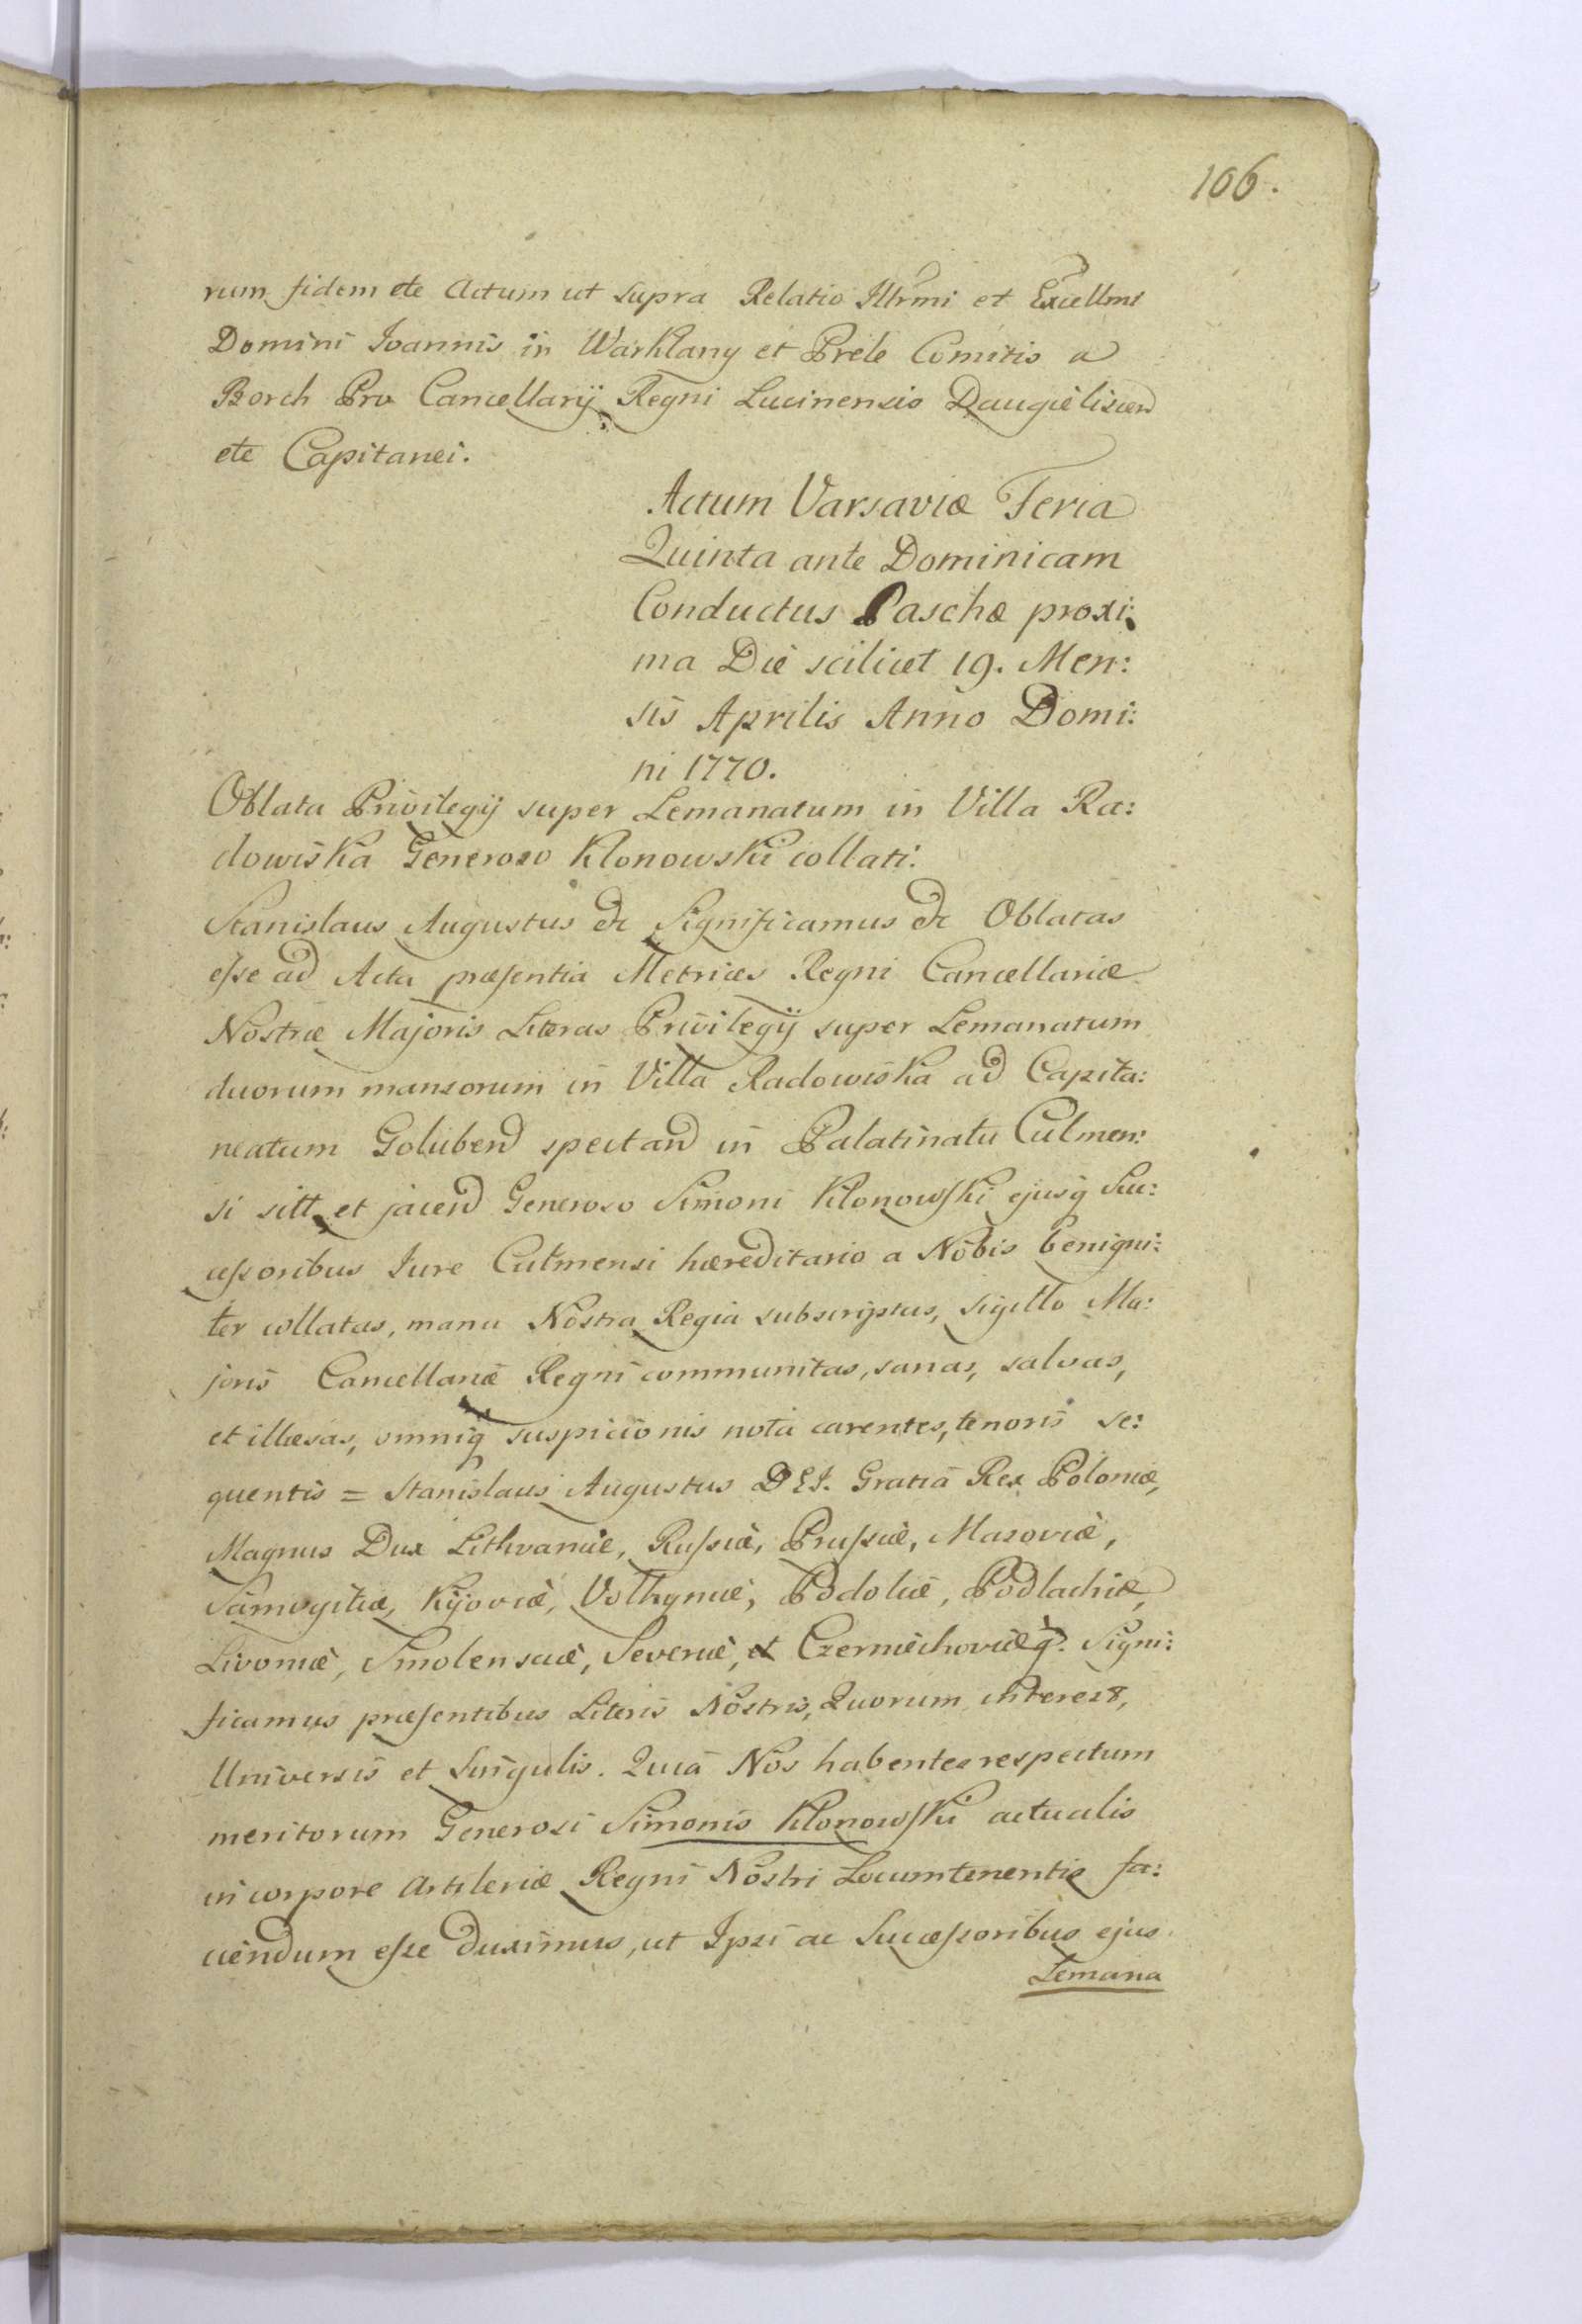 106.
rum fidem etc Actum ut supra Relatio Illrmi et Excellmi
Domini Joannis in Warklany et Prele Comitis a
Borch Pro Cancellarij Regni Lucinensis Daugieliscen
etc Capitanei.
Actum Varsaviæ Feria
Quinta ante Dominicam
Conductus Paschæ proxi:
ma Die scilicet 19. Men:
sis Aprilis Anno Domi:
ni 1770.
Oblata Privilegij super Lemanatum in Villa Ra:
dowiska Generoso Klonowski collati.
Stanislaus Augustus etc Significamus etc Oblatas
esse ad Acta præsentia Metrices Regni Cancellariæ
Nostræ Majoris Literas Privilegij super Lemanatum
duorum mansorum in Villa Radowiska ad Capita:
neatum Golubend spectand in Palatinatu Culmen:
si sitt et jacend Generoso Simoni Klonowski ejusq Suc:
cessoribus Jure Culmensi hæreditario a Nobis benigni:
ter collatas, manu Nostra Regia subscriptas, Sigillo Ma:
joris Cancellariæ Regni communitas, sanas, salvas,
et illæsas, omniq suspicionis nota carentes, tenoris se:
quentis = Stanislaus Augustus DEI. Gratia Rex Poloniæ,
Magnus Dux Lithvaniæ, Russiæ, Prussiæ, Mazoviæ,
Samogitiæ, Kijoviæ, Volhyniæ, Podoliæ, Podlachiæ,
Livoniæ, Smolensciæ, Severiæ, et Czerniechoviæq. Signi:
ficamus præsentibus Literis Nostris, Quorum interest,
Universis et Singulis. Quia Nos habentes respectum
meritorum Generosi Simonis Klonowski actualis
in corpore Artileriæ Regni Nostri Locumtenentis fa:
ciendum esse duximus, ut Ipsi ac Successoribus ejus
Lemana